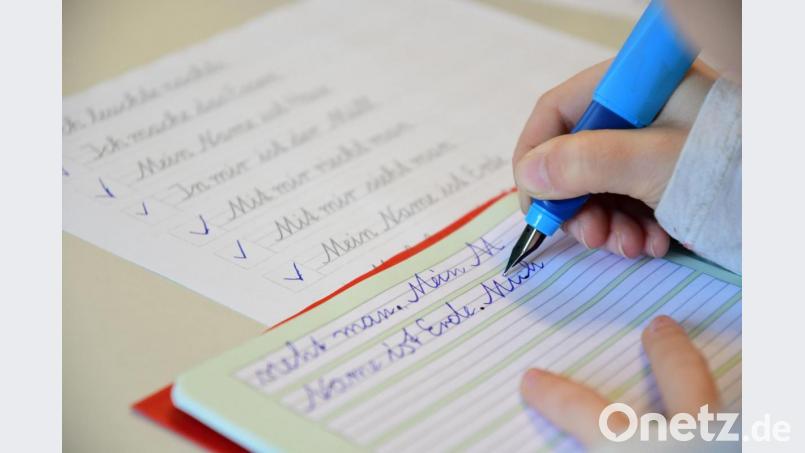 Ich leuchte nachts
Ich mache den
Mein Name ist
In mir ist der Müll
Mit mir näht man
Mit mir sieht man
Mein Name ist Erde
näht man. Mein N
Name ist Erde. Mich
Onetz.de